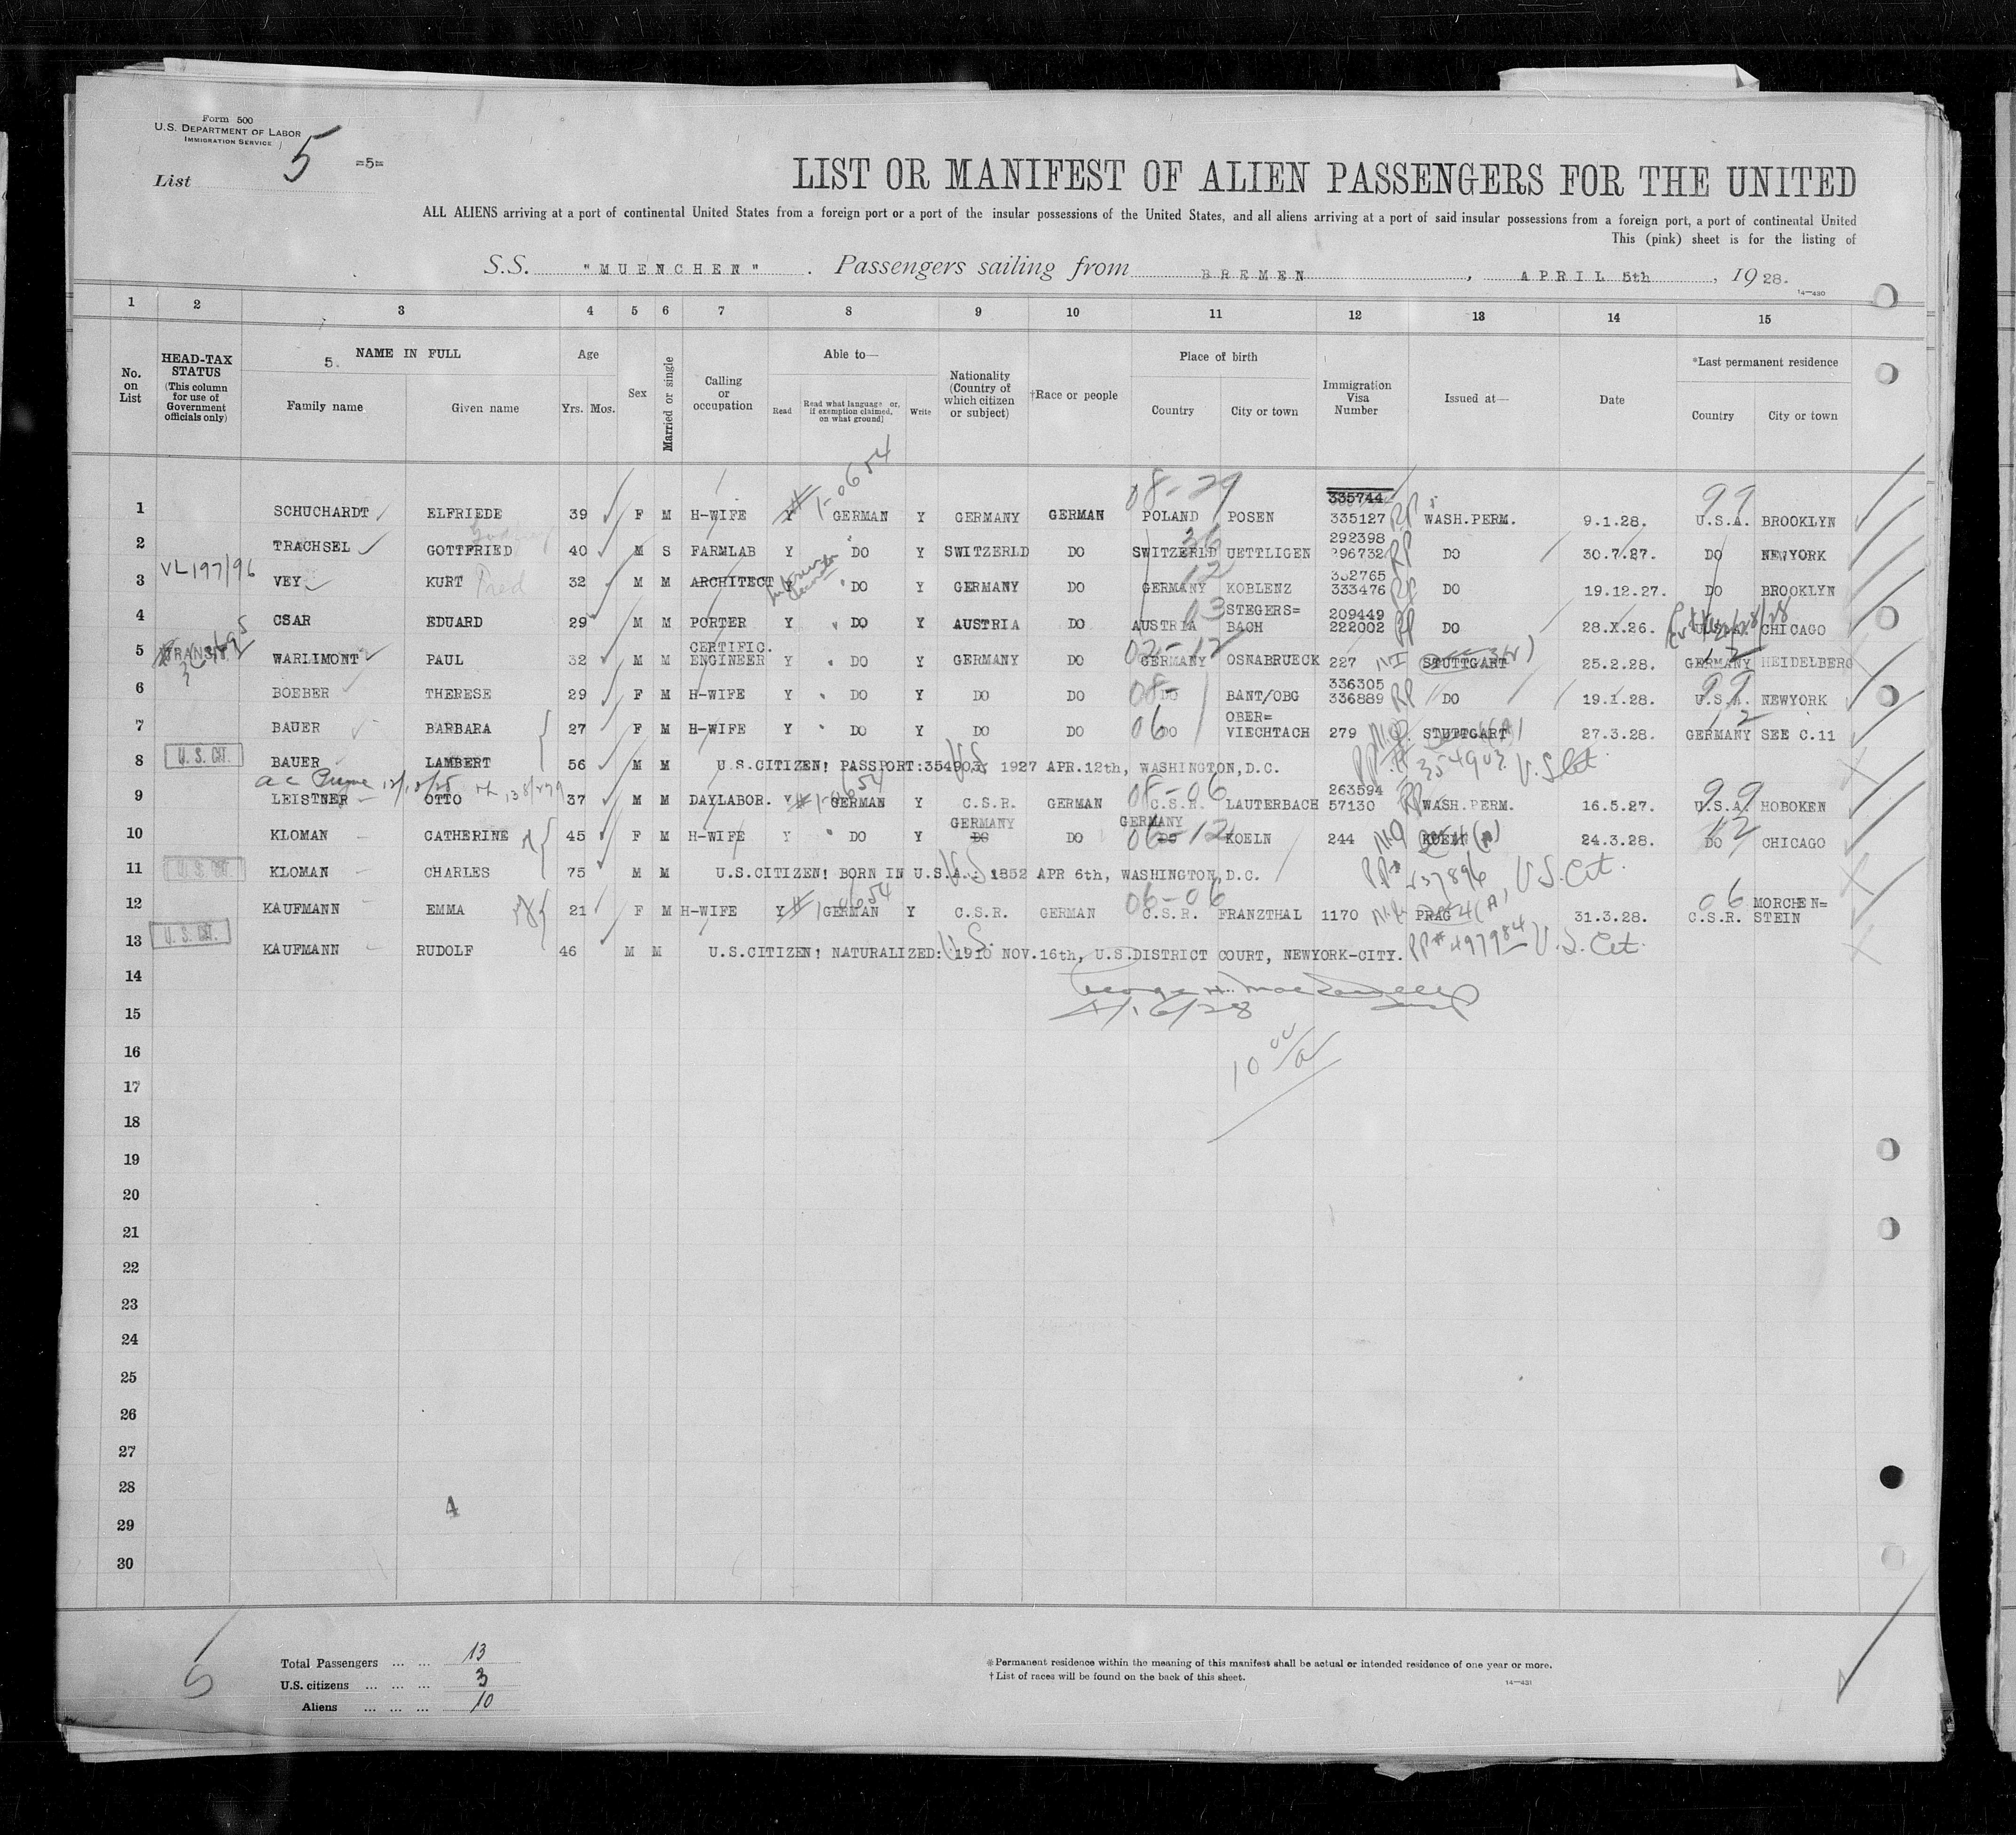 Form 500
U.S. DEPARTMENT OF LABOR
IMMIGRATION SERVICE
List 5 =5=
LIST OR MANIFEST OF ALIEN PASSENGERS FOR THE UNITED
ALL ALIENS arriving at a port of continental United States from a foreign port or a port of the insular possessions of the United States, and all aliens arriving at a port of said insular possessions from a foreign port, a port of continental United
This (pink) sheet is for the listing of
S.S. "MUENCHEN" . Passengers sailing from BREMEN , APRIL 5th , 1928.
14—430
1 2 3 4 5 6 7 8 9 10 11 12 13 14 15
No. on List
HEAD-TAX STATUS (This column for use of Government officials only)
5. NAME IN FULL
Family name Given name
Age Yrs. Mos.
Sex
Married or single
Calling or occupation
Able to—
Read Read what language or, if exemption claimed, on what ground] Write
Nationality (Country of which citizen or subject)
†Race or people
Place of birth
Country City or town
Immigration Visa Number
Issued at—
Date
*Last permanent residence
Country City or town
08-29 335744 99
1 SCHUCHARDT ELFRIEDE 39 F M H-WIFE Y # 1-0654 GERMAN Y GERMANY GERMAN POLAND POSEN 335127 RP WASH.PERM. 9.1.28. U.S.A. BROOKLYN
36 292398
2 TRACHSEL GOTTFRIED 40 M S FARMLAB Y DO Y SWITZERLD DO SWITZERLD UETTLIGEN 296732 RP DO 30.7.27. DO NEWYORK
VL197/96 12 332765
3 VEY KURT Fred 32 M M ARCHITECT Y DO Y GERMANY DO GERMANY KOBLENZ 333476 RP DO 19.12.27. DO BROOKLYN
03 STEGERS= 209449
4 CSAR EDUARD 29 M M PORTER Y DO Y AUSTRIA DO AUSTRIA BACH 222002 RP DO 28.X.26. U.S.A. CHICAGO
TRANSIT CERTIFIC. 02-12 12
5 WARLIMONT PAUL 32 M M ENGINEER Y DO Y GERMANY DO GERMANY OSNABRUECK 227 STUTTGART 25.2.28. GERMANY HEIDELBERG
08- 336305 99
6 BOEBER THERESE 29 F M H-WIFE Y DO Y DO DO DO BANT/OBG 336889 RP DO 19.1.28. U.S.A. NEWYORK
06 OBER= 12
7 BAUER BARBARA 27 F M H-WIFE Y DO Y DO DO DO VIECHTACH 279 STUTTGART 27.3.28. GERMANY SEE C.11
U. S. CIT.
8 BAUER LAMBERT 56 M M U.S.CITIZEN! PASSPORT:354903, 1927 APR.12th, WASHINGTON,D.C. PP# 354903 U.S Cit.
08-06 263594 99
9 LEISTNER OTTO 37 M M DAYLABOR. Y # 1-0654 GERMAN Y C.S.R. GERMAN C.S.R. LAUTERBACH 57130 RP WASH.PERM. 16.5.27. U.S.A. HOBOKEN
GERMANY GERMANY 06-12 12
10 KLOMAN CATHERINE 45 F M H-WIFE Y DO Y DO DO DO KOELN 244 KOELN 24.3.28. DO CHICAGO
U. S. CIT.
11 KLOMAN CHARLES 75 M M U.S.CITIZEN! BORN IN U.S.A.: 1852 APR 6th, WASHINGTON,D.C. PP# U.S. Cit.
06-06 06 MORCHEN=
12 KAUFMANN EMMA 21 F M H-WIFE Y # 1-0654 GERMAN Y C.S.R. GERMAN C.S.R. FRANZTHAL 1170 PRAG 31.3.28. C.S.R. STEIN
U. S. CIT.
13 KAUFMANN RUDOLF 46 M M U.S.CITIZEN! NATURALIZED: 1910 NOV.16th, U.S.DISTRICT COURT, NEWYORK-CITY. PP# 497984 U.S. Cit.
14
15 4/16/28
16
17
18
19
20
21
22
23
24
25
26
27
28
4
29
30
5
Total Passengers ... ... 13
U.S. citizens ... ... ... 3
Aliens ... ... ... 10
*Permanent residence within the meaning of this manifest shall be actual or intended residence of one year or more.
†List of races will be found on the back of this sheet.
14—431